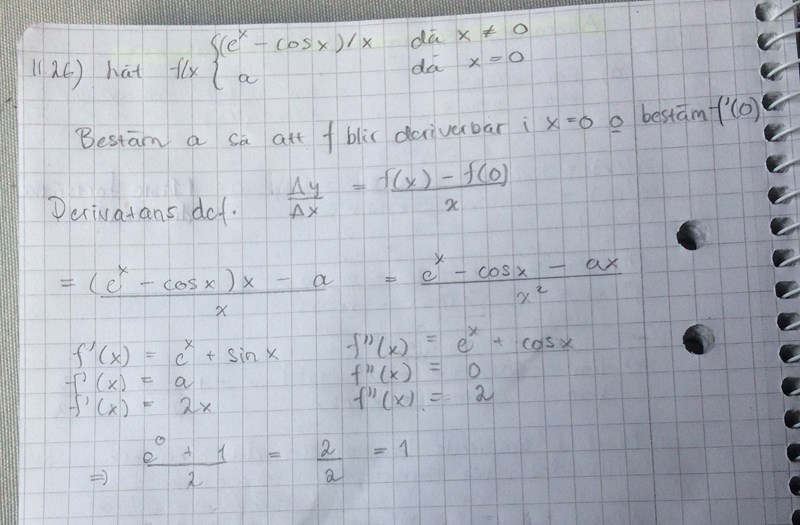 1126) låt f(x { (e^x - cosx)/x då x ≠ 0
a då x = 0
Bestäm a så att f blir deriverbar i x=0 o bestäm f'(0)
Derivatans def. Δy/Δx = f(x) - f(0) / x
= (e^x - cosx)x - a / x = e^x - cosx - ax / x²
f'(x) = e^x + sinx f''(x) = e^x + cosx
f'(x) = a f''(x) = 0
f'(x) = 2x f''(x) = 2
⇒ e^0 + 1 / 2 = 2/2 = 1